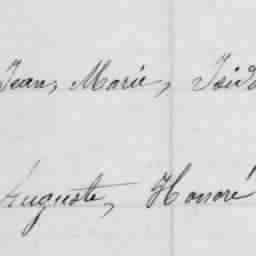 Jean, Marie, Isido
Auguste, Honoré